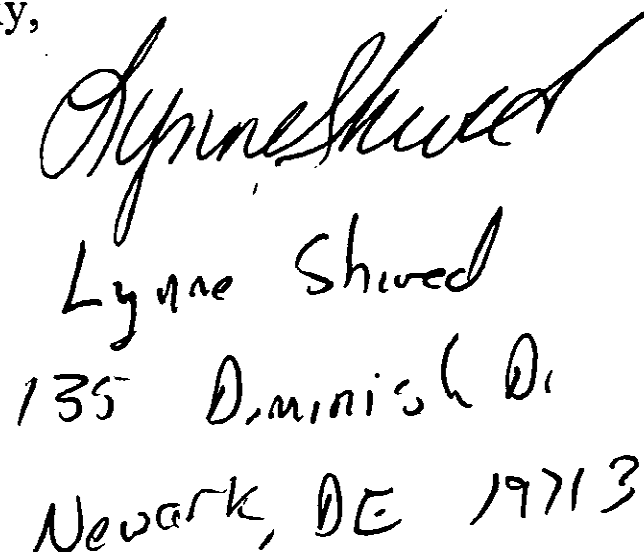 y,
Lynne Shived
Lynne Shived
135 Diminish Dr
Newark, DE 19713